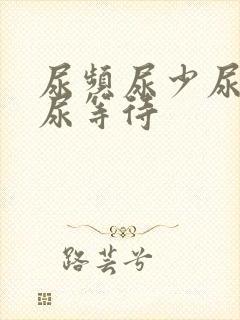 尿頻尿少尿
尿等待
路芸兮